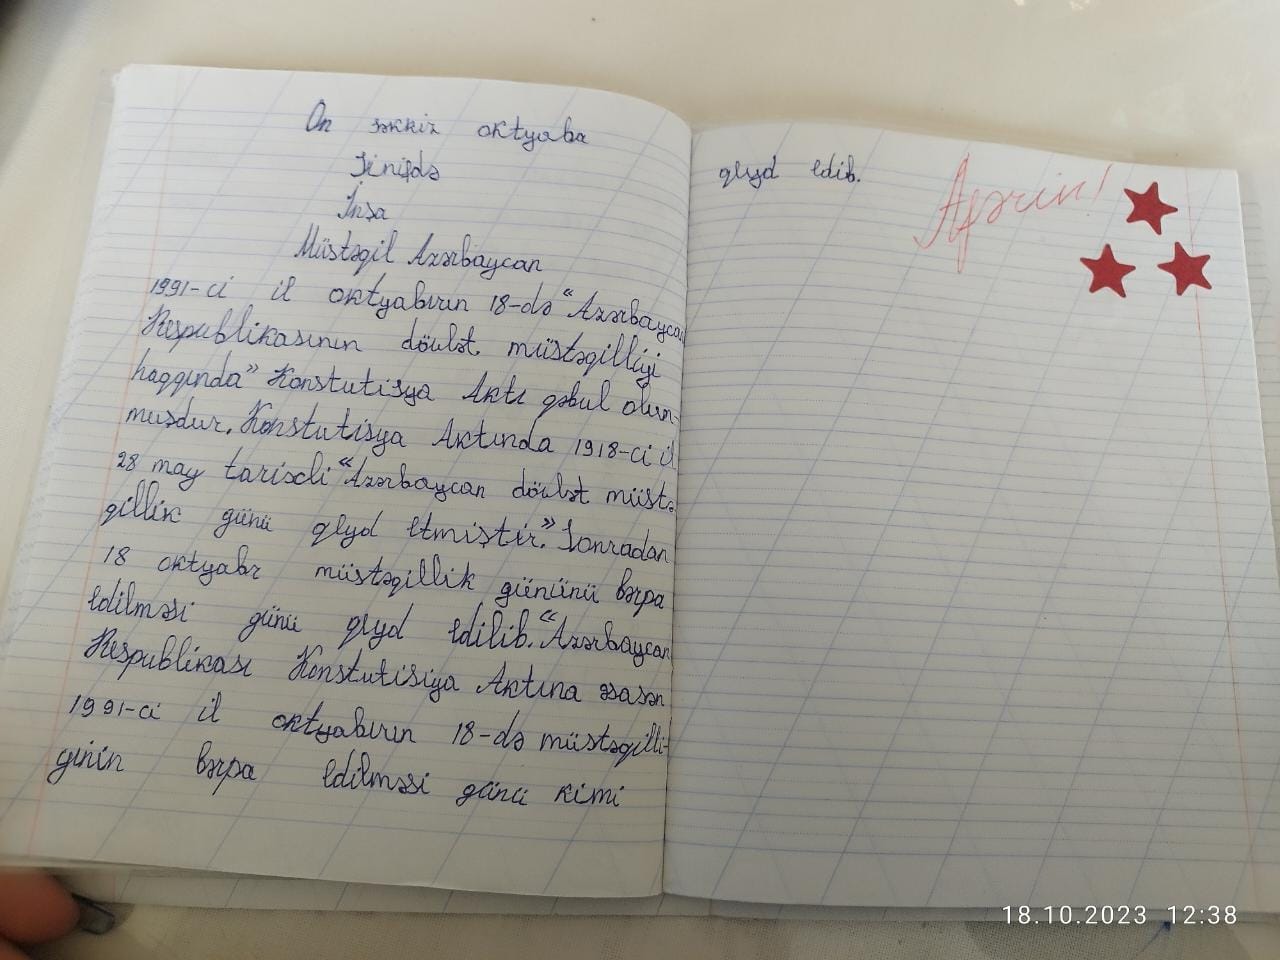 On səkkiz oktyabr
Sinifdə
İnşa
Müstəqil Azərbaycan
1991-ci il oktyabrın 18-də "Azərbaycan
Respublikasının dövlət müstəqilliyi
haqqında" Konstutisya Aktı qəbul olun-
muşdur. Konstutisya Aktında 1918-ci il
28 may tarixli "Azərbaycan dövlət müstə
qillik günü qeyd etmiştir." Sonradan
18 oktyabr müstəqillik gününü bərpa
edilməsi günü qeyd edilib. "Azərbaycan
Respublikası Konstutisiya Aktına əsasən
1991-ci il oktyabrın 18-də müstəqilli-
yinin bərpa edilməsi günü kimi
qeyd edib.
Afərin!
18.10.2023 12:38